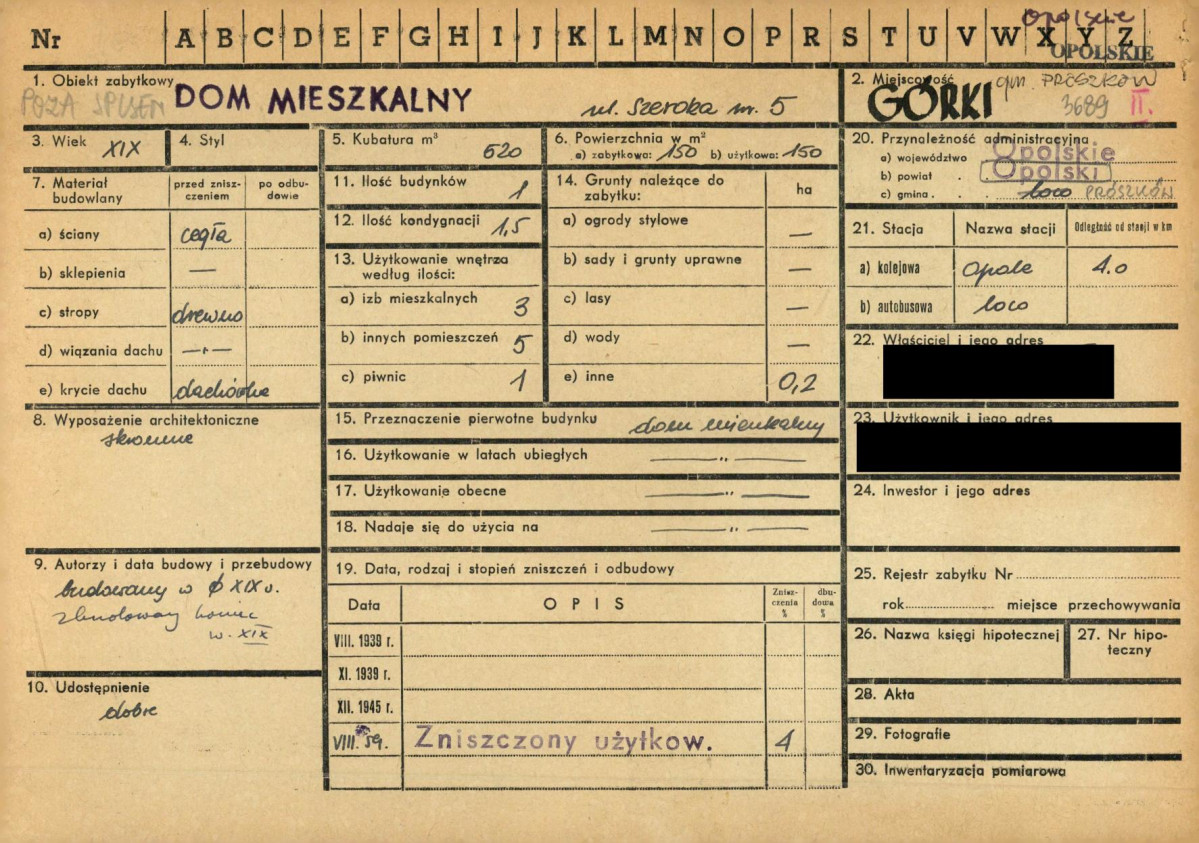 Nr A B C D E F G H I J K L M N O P R S T U V W X Y Z
Opolskie
OPOLSKIE
1. Obiekt zabytkowy
POZA SPISEM
DOM MIESZKALNY
ul. Szeroka nr. 5
2. Miejscowość
gm. PRÓSZKÓW
GÓRKI
3689 II.
3. Wiek XIX
4. Styl
5. Kubatura m³ 620
6. Powierzchnia w m²
a) zabytkowa: 150 b) użytkowa: 150
7. Materiał budowlany
przed zniszczeniem
po odbudowie
a) ściany cegła
b) sklepienia —
c) stropy drewno
d) wiązania dachu —"—
e) krycie dachu dachówka
8. Wyposażenie architektoniczne
skromne
9. Autorzy i data budowy i przebudowy
budowany w XIX w.
zbudowany koniec
w. XIX
10. Udostępnienie
dobre
11. Ilość budynków 1
12. Ilość kondygnacji 1,5
13. Użytkowanie wnętrza
według ilości:
a) izb mieszkalnych 3
b) innych pomieszczeń 5
c) piwnic 1
14. Grunty należące do
zabytku:
ha
a) ogrody stylowe —
b) sady i grunty uprawne —
c) lasy —
d) wody —
e) inne 0,2
15. Przeznaczenie pierwotne budynku dom mieszkalny
16. Użytkowanie w latach ubiegłych —"—
17. Użytkowanie obecne —"—
18. Nadaje się do użycia na —"—
19. Data, rodzaj i stopień zniszczeń i odbudowy
Data
OPIS
Zniszczenia %
dbudowa %
VIII. 1939 r.
XI. 1939 r.
XII. 1945 r.
VIII. 59. Zniszczony użytkow. 4
20. Przynależność administracyjna
a) województwo Opolskie
b) powiat . . Opolski
c) gmina . . loco PRÓSZKÓW
21. Stacja
Nazwa stacji
Odległość od stacji w km
a) kolejowa Opole 4.0
b) autobusowa loco
22. Właściciel i jego adres
23. Użytkownik i jego adres
24. Inwestor i jego adres
25. Rejestr zabytku Nr
rok miejsce przechowywania
26. Nazwa księgi hipotecznej
27. Nr hipoteczny
28. Akta
29. Fotografie
30. Inwentaryzacja pomiarowa